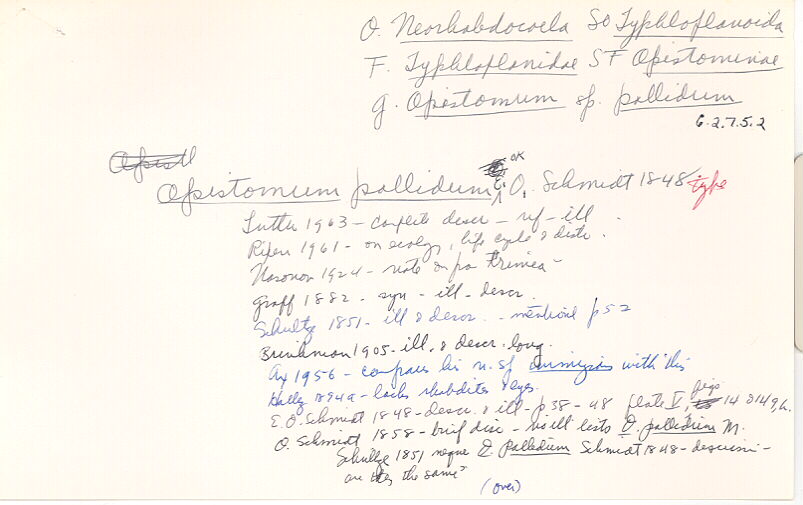 O. Neorhabdocoela SO Typhloplanoida
F. Typhloplanidae SF Opistominae
g. Opistomum sp. pallidum
6.2.7.5.2
Opistomum pallidum E. O. Schmidt 1848 type
OK
Luther 1963 - complete descr - ref - ill
Rixen 1961 - on ecology, life cycle & distr.
Nasonov 1924 - note on Krimea -
Graff 1882 - syn - ill - descr.
Schultze 1851 - ill & descr. - mentioned p 52
Brinkman 1905 - ill. & descr. long.
Ax 1956 - compares his n. sp. with this
Hallez 1894a - lacks rhabdites & eyes.
E. O. Schmidt 1848 - descr. & ill - p 38 - 48 plate V, figs 14 & 14 g, h.
O. Schmidt 1858 - brief disc - no ill lists O. pallidum M.
Schultze 1851 neque O. pallidum Schmidt 1848 -
are the same"
(over)